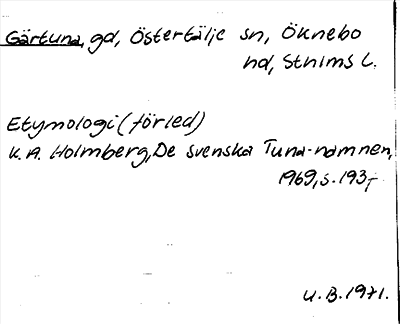 Gärtuna, gd, Östertälje sn, Öknebo
hd, Sthlms L.
Etymologi (förled)
K. A. Holmberg, De svenska Tuna-namnen,
1969, s. 193,-
U. B. 1971.